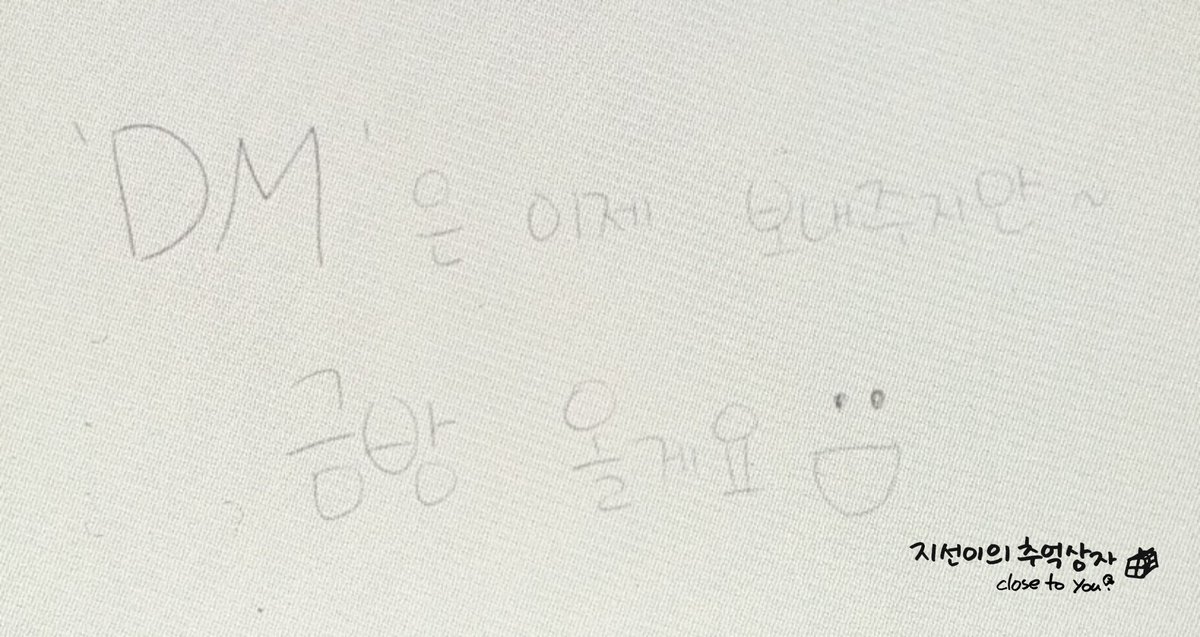 'DM'은 이제 보내주지만~
금방 올게요
지선이의 추억상자
close to you?